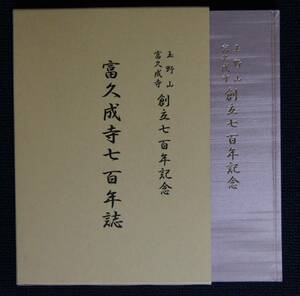 玉野山
富久成寺
創立七百年記念
富久成寺七百年誌
玉野山
富久成寺
創立七百年記念